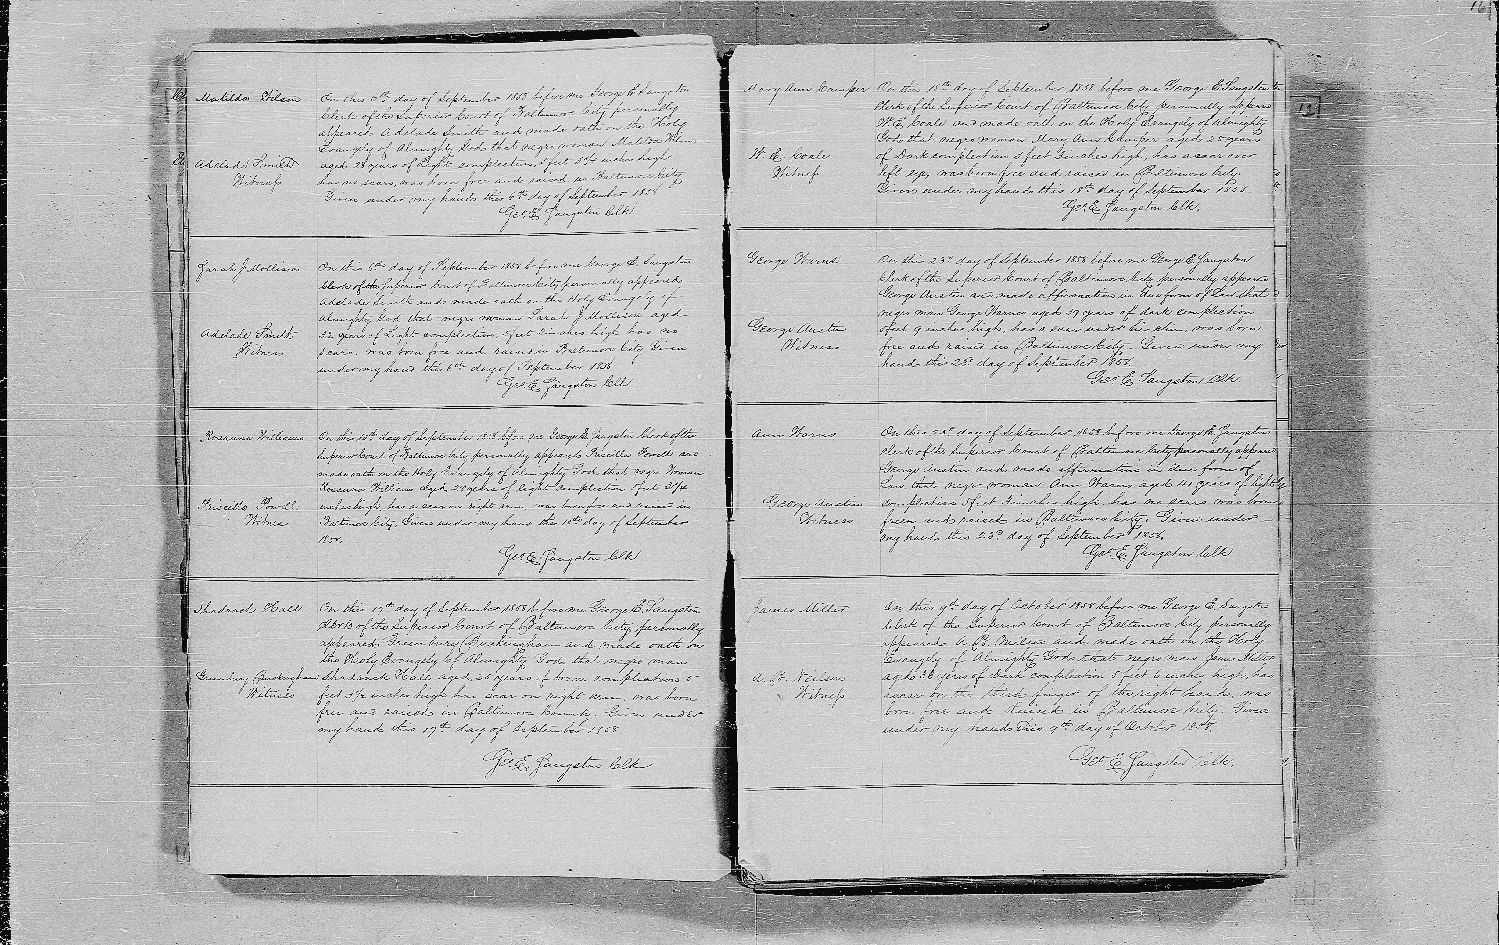 Matilda Wilson
On this 6th day of September 1858 before me George E. Sangston
Clerk of the Superior Court of Baltimore City personally
appeared Adelade Smith and made oath on the Holy
Evangely of Almighty God that negro woman Matilda Wilson
Adelade Smith
Witness
aged 28 years of Light complection, 5 feet 3 1/4 inches high
has no scars, was born free and raised in Baltimore City
Given under my hand this 6th day of September 1858
Geo. E. Sangston Clk
Sarah J Mollison
On this 6th day of September 1858 before me George E. Sangston
Clerk of the Superior Court of Baltimore City personally appeared
Adelade Smith and made oath on the Holy Evangely of
Almighty God that negro woman Sarah J Mollison aged
Adelade Smith
Witness
22 years of Light complection, 5 feet 2 inches high has no
scars, was born free and raised in Baltimore City Given
under my hand this 6th day of September 1858
Geo. E. Sangston Clk
Rosanna Williams
On this 10th day of September 1858 before me George E. Sangston Clerk of the
Superior Court of Baltimore City personally appeared Priscilla Powell and
made oath on the Holy Evangely of Almighty God that negro Woman
Rosanna Williams aged 29 years of light complection 5 feet
Priscilla Powell
Witness
inches high, has a scar on right arm was born free and raised in
Baltimore City. Given under my hand this 10th day of September
1858.
Geo. E. Sangston Clk
Shadrach Hall
On this 17th day of September 1858 before me George E. Sangston
Clerk of the Superior Court of Baltimore City, personally
appeared, Greenbury Buckingham and made oath on
the Holy Evangely of Almighty God that negro man
Greenbury Buckingham
Witness
Shadrach Hall aged, 25 years of brown complection 5
feet 5 1/2 inches high has scar on right arm, was born
free and raised in Baltimore County. Given under
my hand this 17th day of September 1858
Geo. E. Sangston Clk
Mary Ann Camper
On this 18th day of September 1858 before me George E. Sangston
Clerk of the Superior Court of Baltimore City personally appeared
W. E. Coale and made oath on the Holy Evangely of Almighty
God that negro woman Mary Ann Camper aged 25 years
W. E. Coale
Witness
of Dark complection 5 feet inches high, has a scar over
left eye, was born free and raised in Baltimore City.
Given under my hand this 18th day of September 1858
Geo. E. Sangston Clk.
George Warns
On this 23d day of September 1858 before me George E. Sangston
Clerk of the Superior Court of Baltimore City personally appeared
George Austin and made affirmation in due form of Law that
negro man George Warns aged 39 years of dark complection
George Austin
Witness
5 feet 9 inches high, has a scar under his chin, was born
free and raised in Baltimore City. Given under my
hand this 23d day of September 1858.
Geo. E. Sangston Clk
Ann Warns
On this 23d day of September 1858 before me George E. Sangston
Clerk of the Superior Court of Baltimore City personally appeared
George Austin and made affirmation in due form of
Law that negro woman Ann Warns aged 40 years of light
George Austin
Witness
complection 5 feet inches high has no scars was born
free and raised in Baltimore City. Given under
my hand this 23d day of September 1858.
Geo. E. Sangston Clk
James Miller
On this 9th day of October 1858 before me George E. Sangston
Clerk of the Superior Court of Baltimore City personally
appeared A. B. Neilson and made oath on the Holy
Evangely of Almighty God that negro man James Miller
A. B. Neilson
Witness
aged 36 years of Dark complection 5 feet 6 inches high, has
a scar on the third finger of the right hand, was
born free and raised in Baltimore City. Given
under my hand this 9th day of October 1858
Geo. E. Sangston Clk.